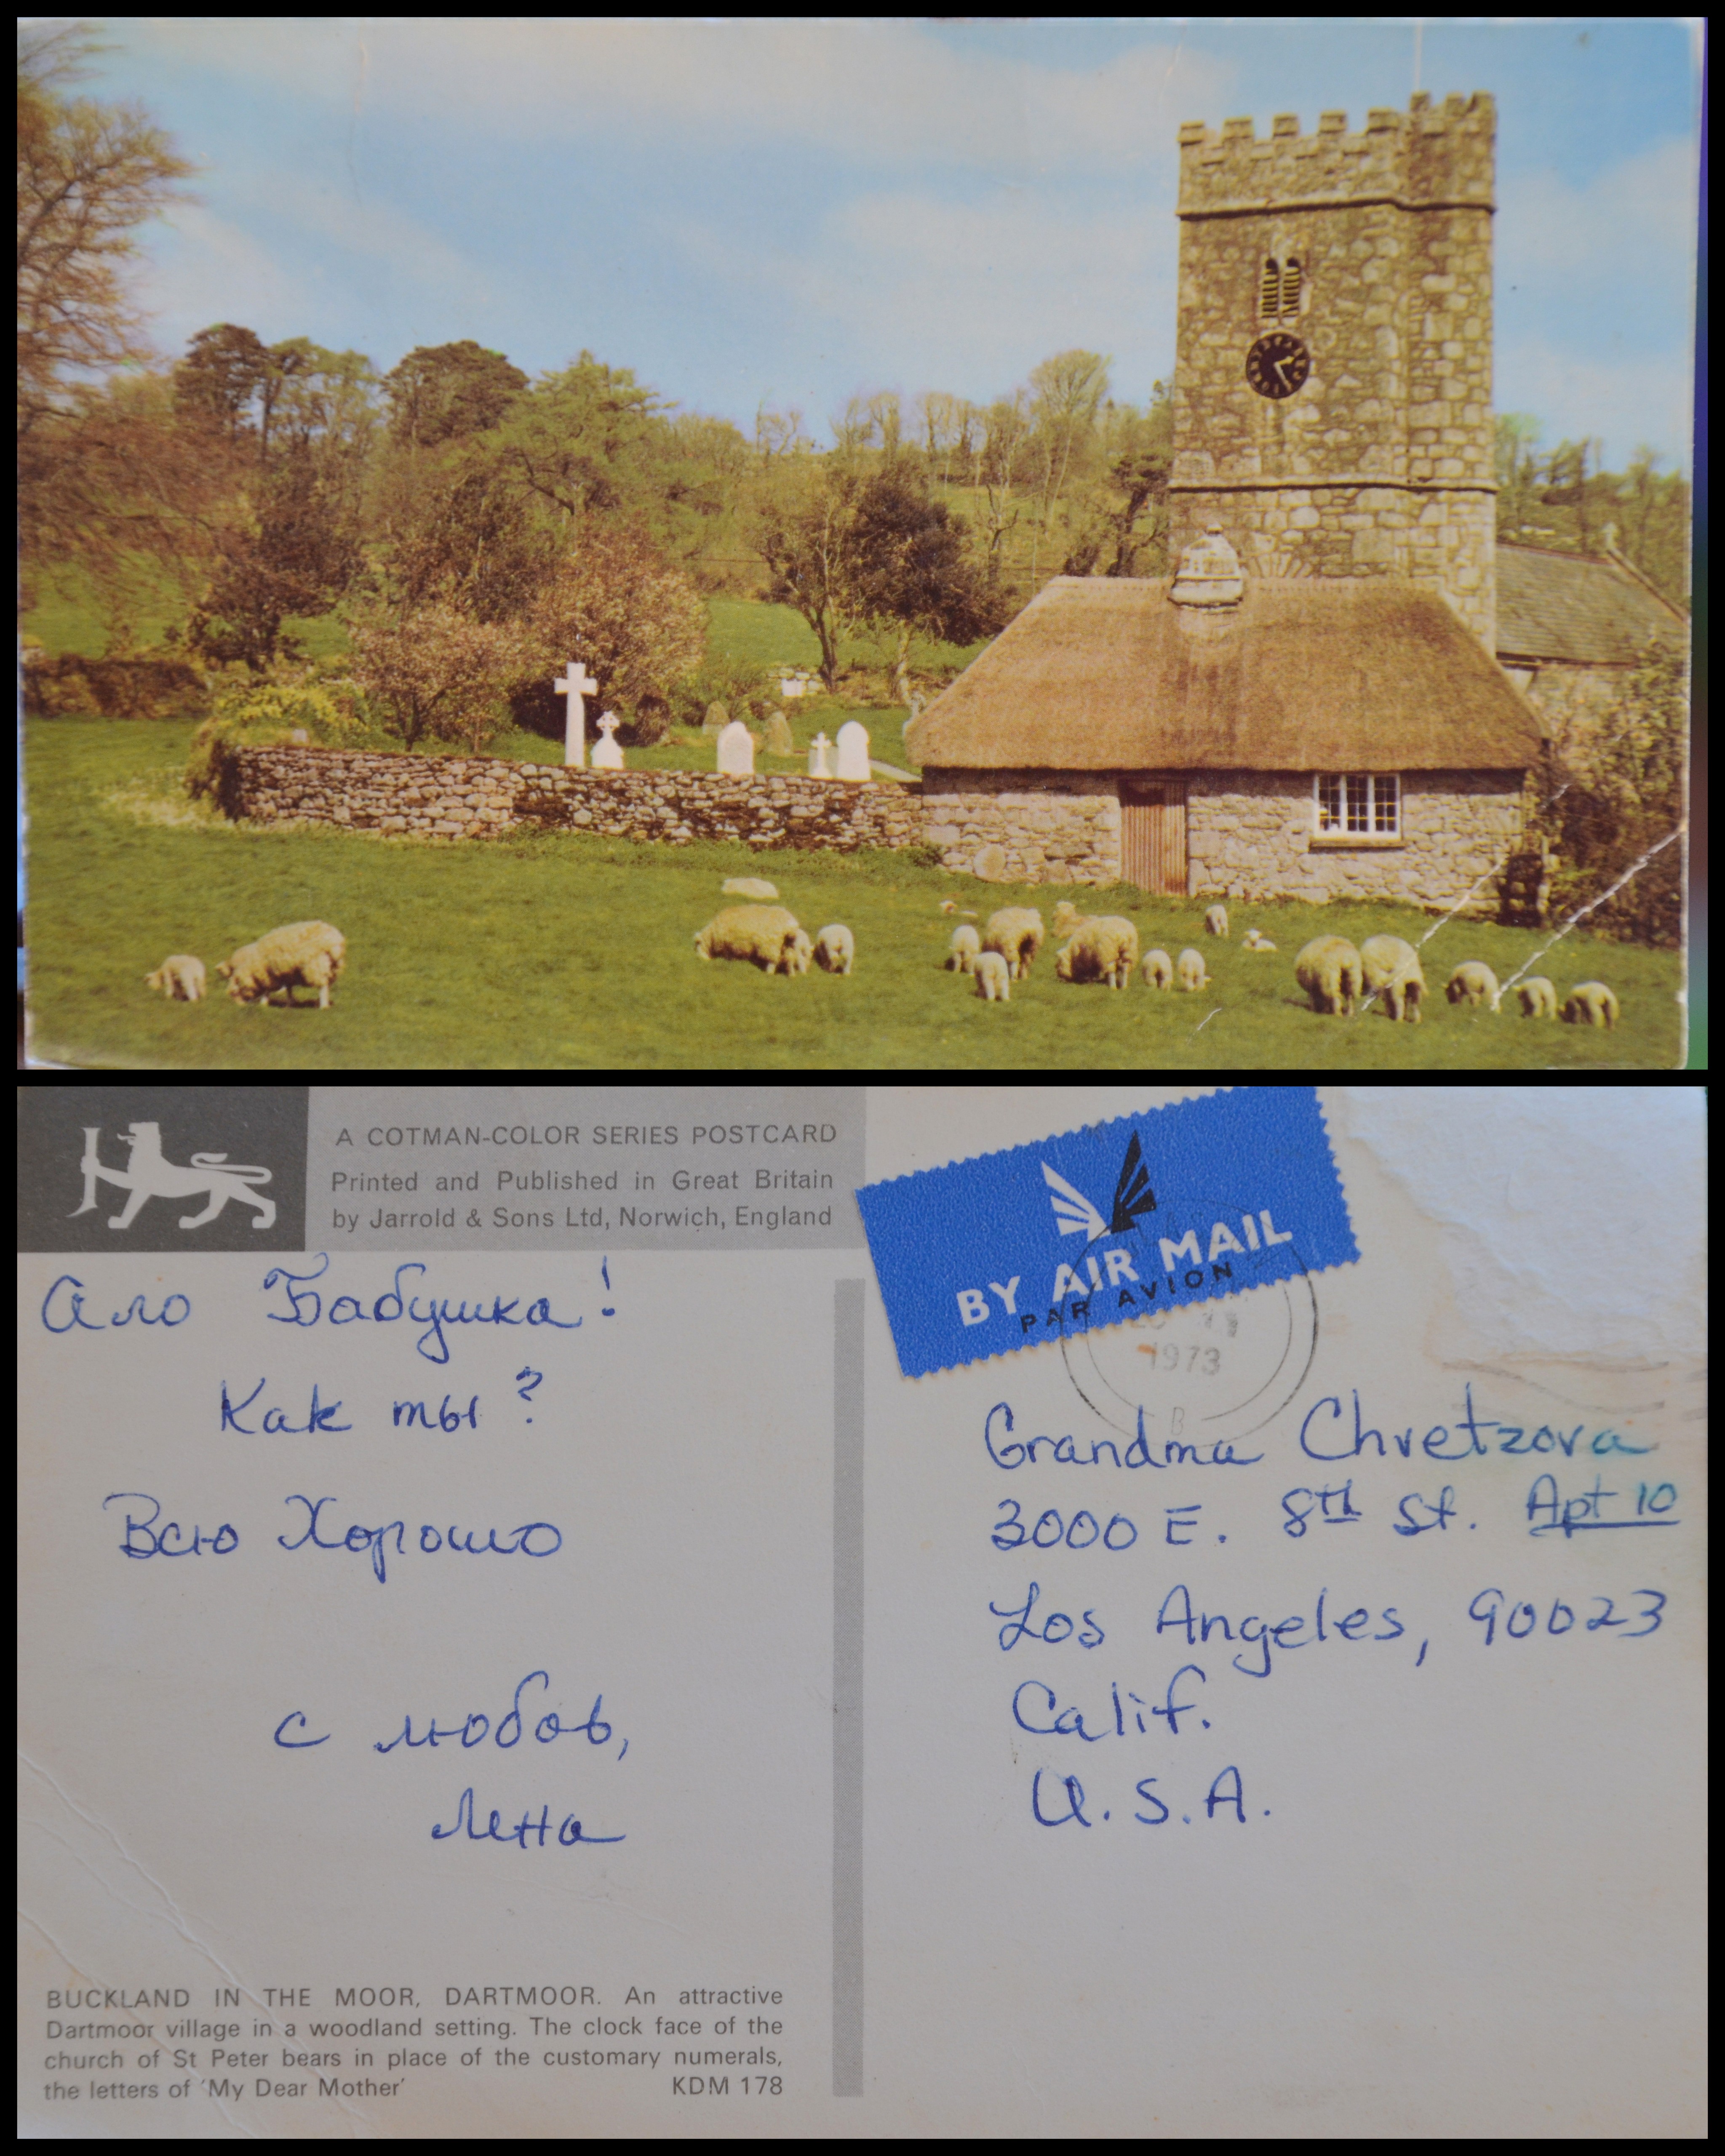 A COTMAN-COLOR SERIES POSTCARD
Printed and Published in Great Britain
by Jarrold & Sons Ltd, Norwich, England
Ало Бабушка!
Как ты?
Всю Хорошо
с любов,
Лена
BUCKLAND IN THE MOOR, DARTMOOR. An attractive
Dartmoor village in a woodland setting. The clock face of the
church of St Peter bears in place of the customary numerals,
the letters of 'My Dear Mother' KDM 178
BY AIR MAIL
PAR AVION
1973
B
Grandma Chvetzova
3000 E. 8th St. Apt 10
Los Angeles, 90023
Calif.
U.S.A.